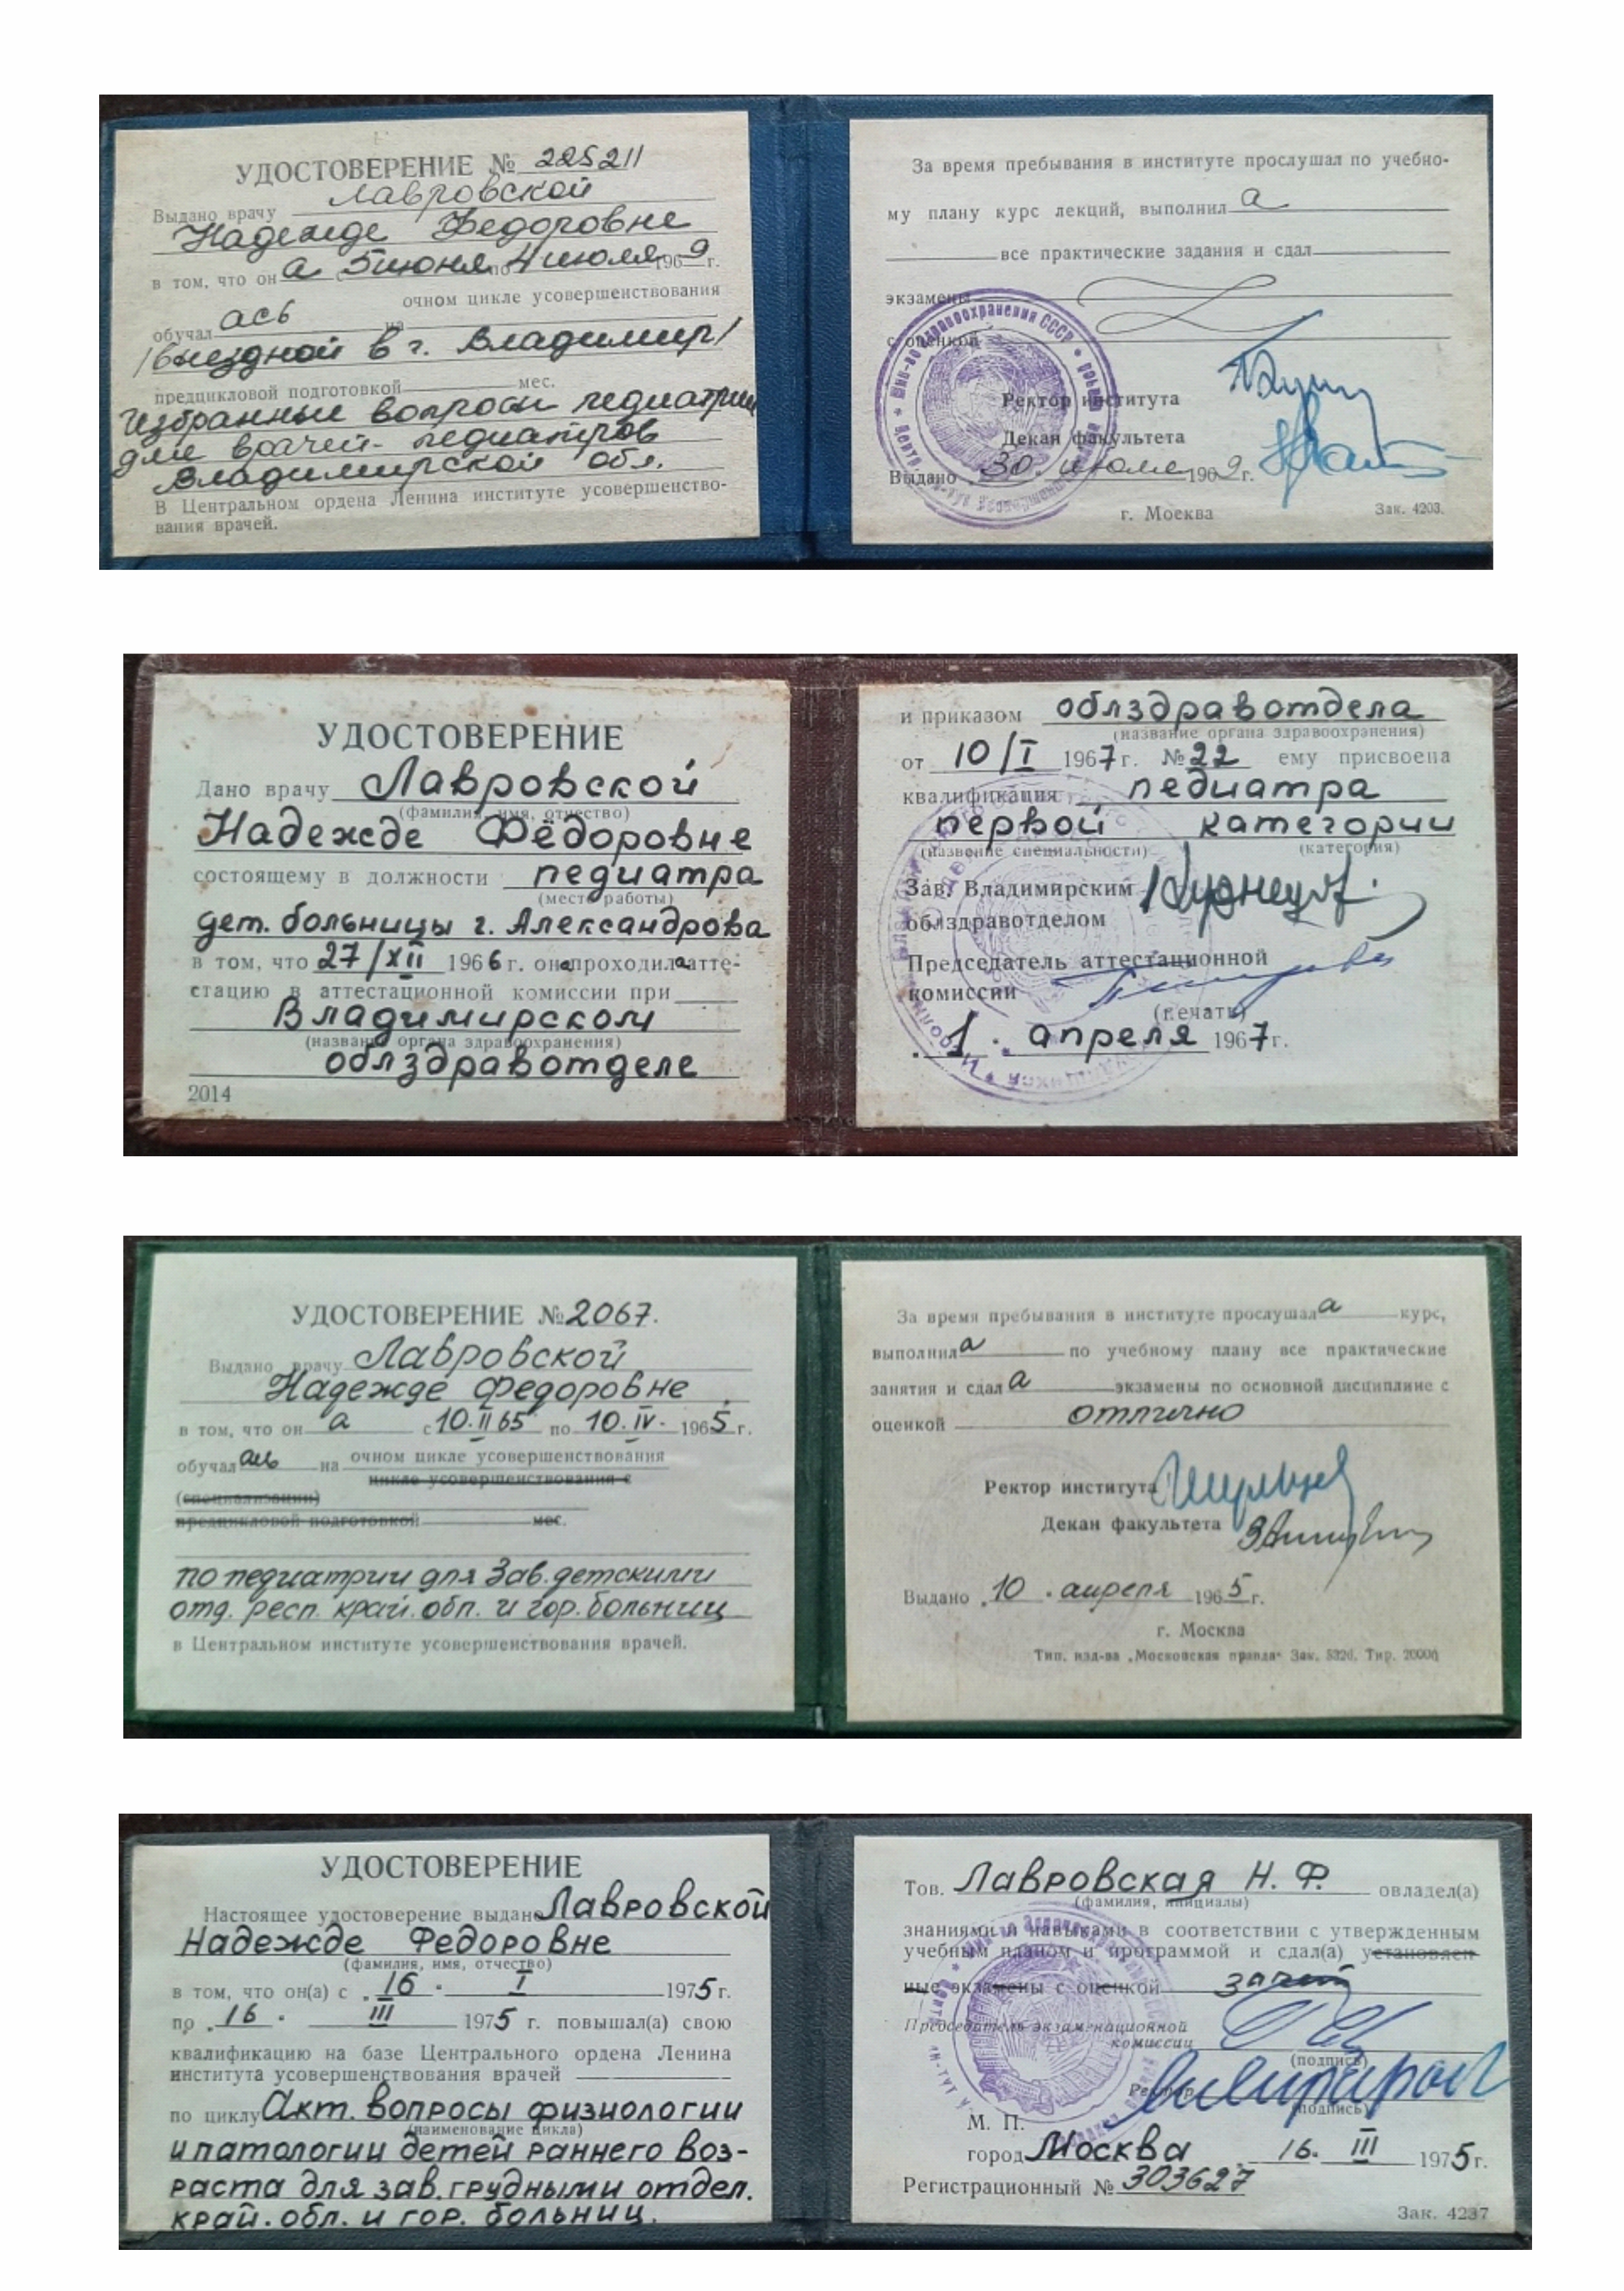 УДОСТОВЕРЕНИЕ № 225211
Выдано врачу Лавровской
Надежде Федоровне
в том, что он а с 5 июня по 4 июля 1969 г.
обучал ась на очном цикле усовершенствования
/выездной в г. Владимир/
предцикловой подготовкой мес.
Избранные вопросы педиатрии
для врачей-педиатров
Владимирской обл.
В Центральном ордена Ленина институте усовершенство-
вания врачей.
За время пребывания в институте прослушал по учебно-
му плану курс лекций, выполнил а
все практические задания и сдал
экзамены
с оценкой
Ректор института
Декан факультета
Выдано 30 июля 1969 г.
г. Москва
Зак. 4203.
УДОСТОВЕРЕНИЕ
Дано врачу Лавровской
(фамилия, имя, отчество)
Надежде Фёдоровне
состоящему в должности педиатра
(место работы)
дет. больницы г. Александрова
в том, что 27/XII 1966 г. она проходила атте-
стацию в аттестационной комиссии при
Владимирском
(название органа здравоохранения)
облздравотделе
2014
и приказом облздравотдела
(название органа здравоохранения)
от 10/I 1967 г. № 22 ему присвоена
квалификация педиатра
первой категории
(название специальности) (категория)
Зав. Владимирским
облздравотделом
Председатель аттестационной
комиссии
(печать)
1. апреля 1967 г.
УДОСТОВЕРЕНИЕ № 2067.
Выдано врачу Лавровской
Надежде Федоровне
в том, что он а с 10.II 65 по 10.IV. 1965 г.
обучал ась на очном цикле усовершенствования
цикле усовершенствования с
(специализации)
предцикловой подготовкой мес.
по педиатрии для Зав. детскими
отд. респ. край. обл. и гор. больниц
в Центральном институте усовершенствования врачей.
За время пребывания в институте прослушал а курс,
выполнил а по учебному плану все практические
занятия и сдал а экзамены по основной дисциплине с
оценкой отлично
Ректор института
Декан факультета
Выдано 10. апреля 1965 г.
г. Москва
Тип. изд-ва „Московская правда“ Зак. Тир.
УДОСТОВЕРЕНИЕ
Настоящее удостоверение выдано Лавровской
Надежде Федоровне
(фамилия, имя, отчество)
в том, что он(а) с 16. I 1975 г.
по 16. III 1975 г. повышал(а) свою
квалификацию на базе Центрального ордена Ленина
института усовершенствования врачей
по циклу Акт. вопросы физиологии
(наименование цикла)
и патологии детей раннего воз-
раста для зав. грудными отдел.
край. обл. и гор. больниц.
Тов. Лавровская Н. Ф. овладел(а)
(фамилия, инициалы)
знаниями и навыками в соответствии с утвержденным
учебным планом и программой и сдал(а) установлен-
ные экзамены с оценкой зачет
Председатель экзаменационной
комиссии
(подпись)
Ректор
(подпись)
М. П.
город Москва 16. III 1975 г.
Регистрационный № 303627
Зак. 4237